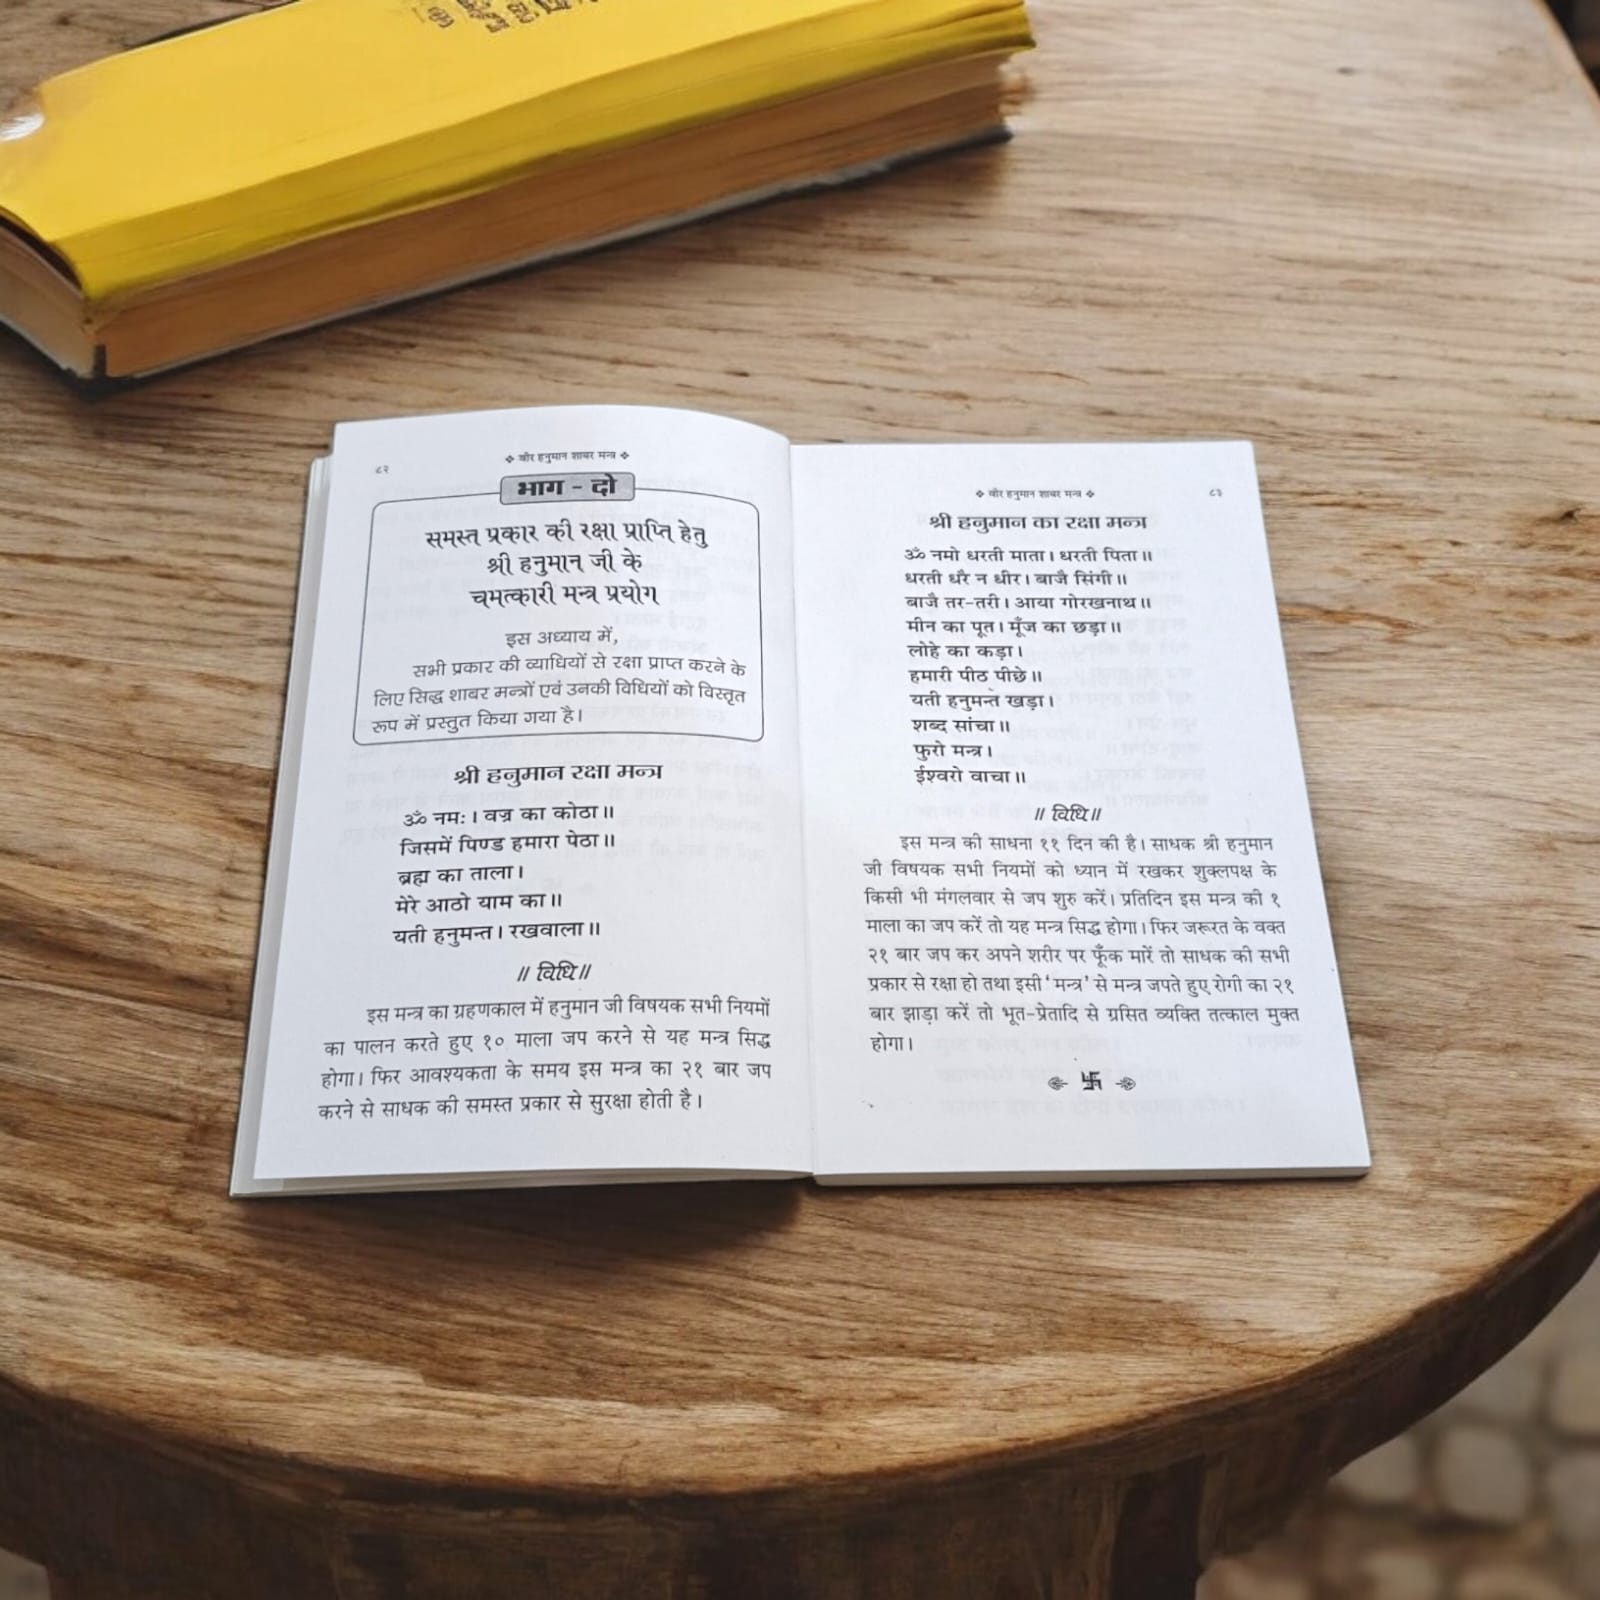 ८२
❖ वीर हनुमान शाबर मन्त्र ❖
भाग - दो
समस्त प्रकार की रक्षा प्राप्ति हेतु
श्री हनुमान जी के
चमत्कारी मन्त्र प्रयोग
इस अध्याय में,
सभी प्रकार की व्याधियों से रक्षा प्राप्त करने के
लिए सिद्ध शाबर मन्त्रों एवं उनकी विधियों को विस्तृत
रूप में प्रस्तुत किया गया है।
श्री हनुमान रक्षा मन्त्र
ॐ नमः। वज्र का कोठा॥
जिसमें पिण्ड हमारा पेठा॥
ब्रह्म का ताला।
मेरे आठो याम का॥
यती हनुमन्त। रखवाला॥
॥ विधि॥
इस मन्त्र का ग्रहणकाल में हनुमान जी विषयक सभी नियमों
का पालन करते हुए १० माला जप करने से यह मन्त्र सिद्ध
होगा। फिर आवश्यकता के समय इस मन्त्र का २१ बार जप
करने से साधक की समस्त प्रकार से सुरक्षा होती है।
❖ वीर हनुमान शाबर मन्त्र ❖
८३
श्री हनुमान का रक्षा मन्त्र
ॐ नमो धरती माता। धरती पिता॥
धरती धरै न धीर। बाजै सिंगी॥
बाजै तर-तरी। आया गोरखनाथ॥
मीन का पूत। मूँज का छड़ा॥
लोहे का कड़ा।
हमारी पीठ पीछे॥
यती हनुमन्त खड़ा।
शब्द सांचा॥
फुरो मन्त्र।
ईश्वरो वाचा॥
॥ विधि॥
इस मन्त्र की साधना ११ दिन की है। साधक श्री हनुमान
जी विषयक सभी नियमों को ध्यान में रखकर शुक्लपक्ष के
किसी भी मंगलवार से जप शुरु करें। प्रतिदिन इस मन्त्र की १
माला का जप करें तो यह मन्त्र सिद्ध होगा। फिर जरूरत के वक्त
२१ बार जप कर अपने शरीर पर फूँक मारें तो साधक की सभी
प्रकार से रक्षा हो तथा इसी 'मन्त्र' से मन्त्र जपते हुए रोगी का २१
बार झाड़ा करें तो भूत-प्रेतादि से ग्रसित व्यक्ति तत्काल मुक्त
होगा।